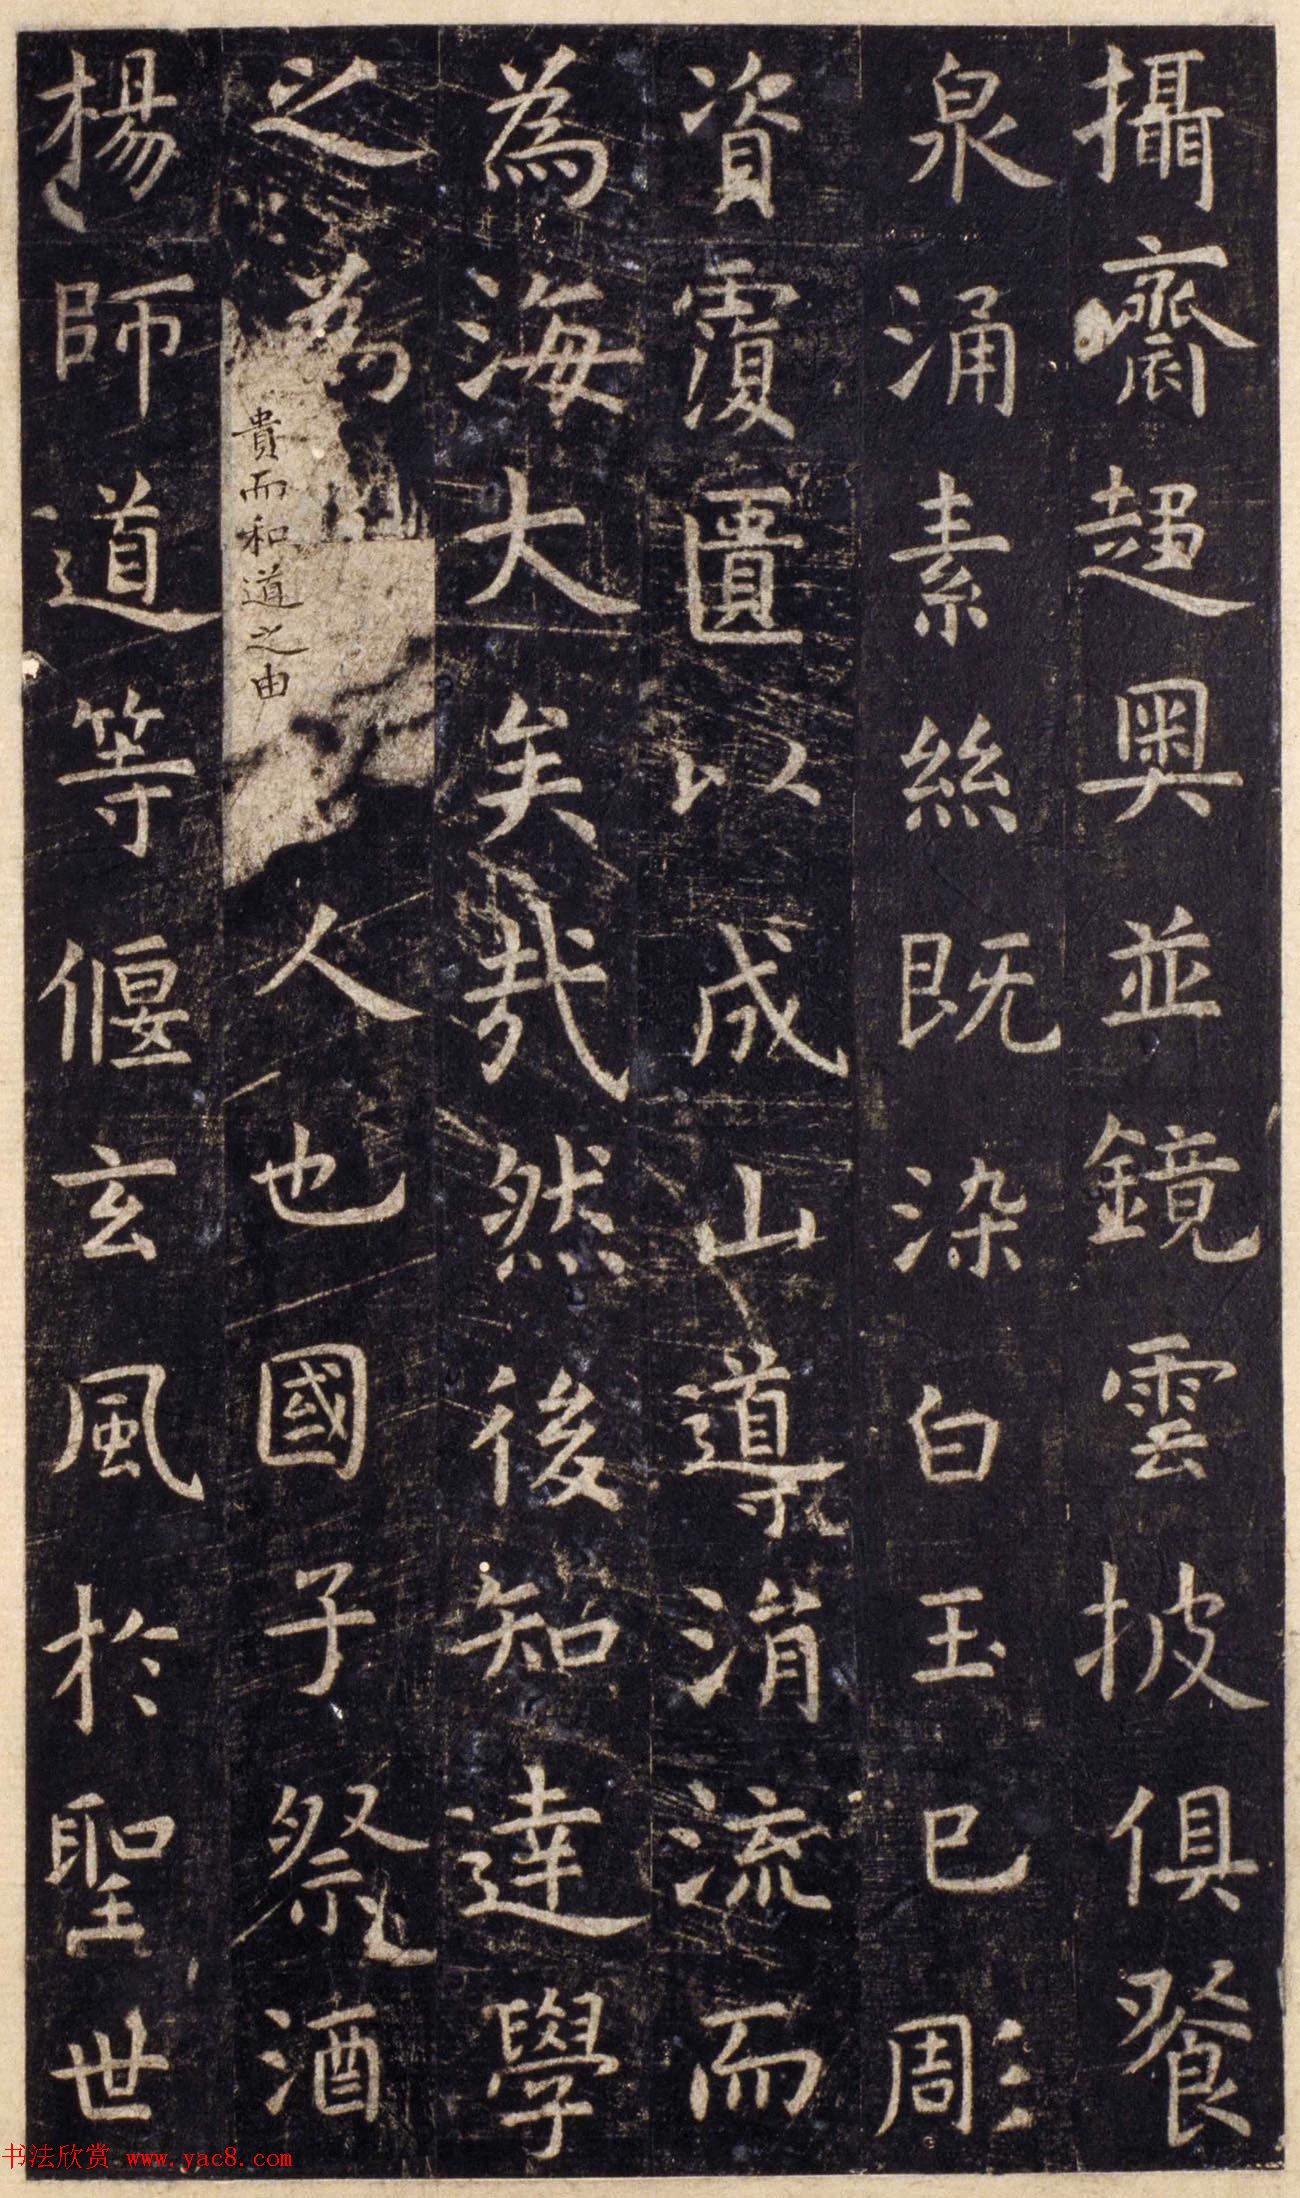 攝齋趨奧並鏡雲披俱餐
泉涌素絲既染白玉已彫
資覆匱以成山導涓流而
為海大矣哉然後知達學
之為
貴而和道之由
人也國子祭酒
楊師道等偃玄風於聖世
书法欣赏 www.yac8.com